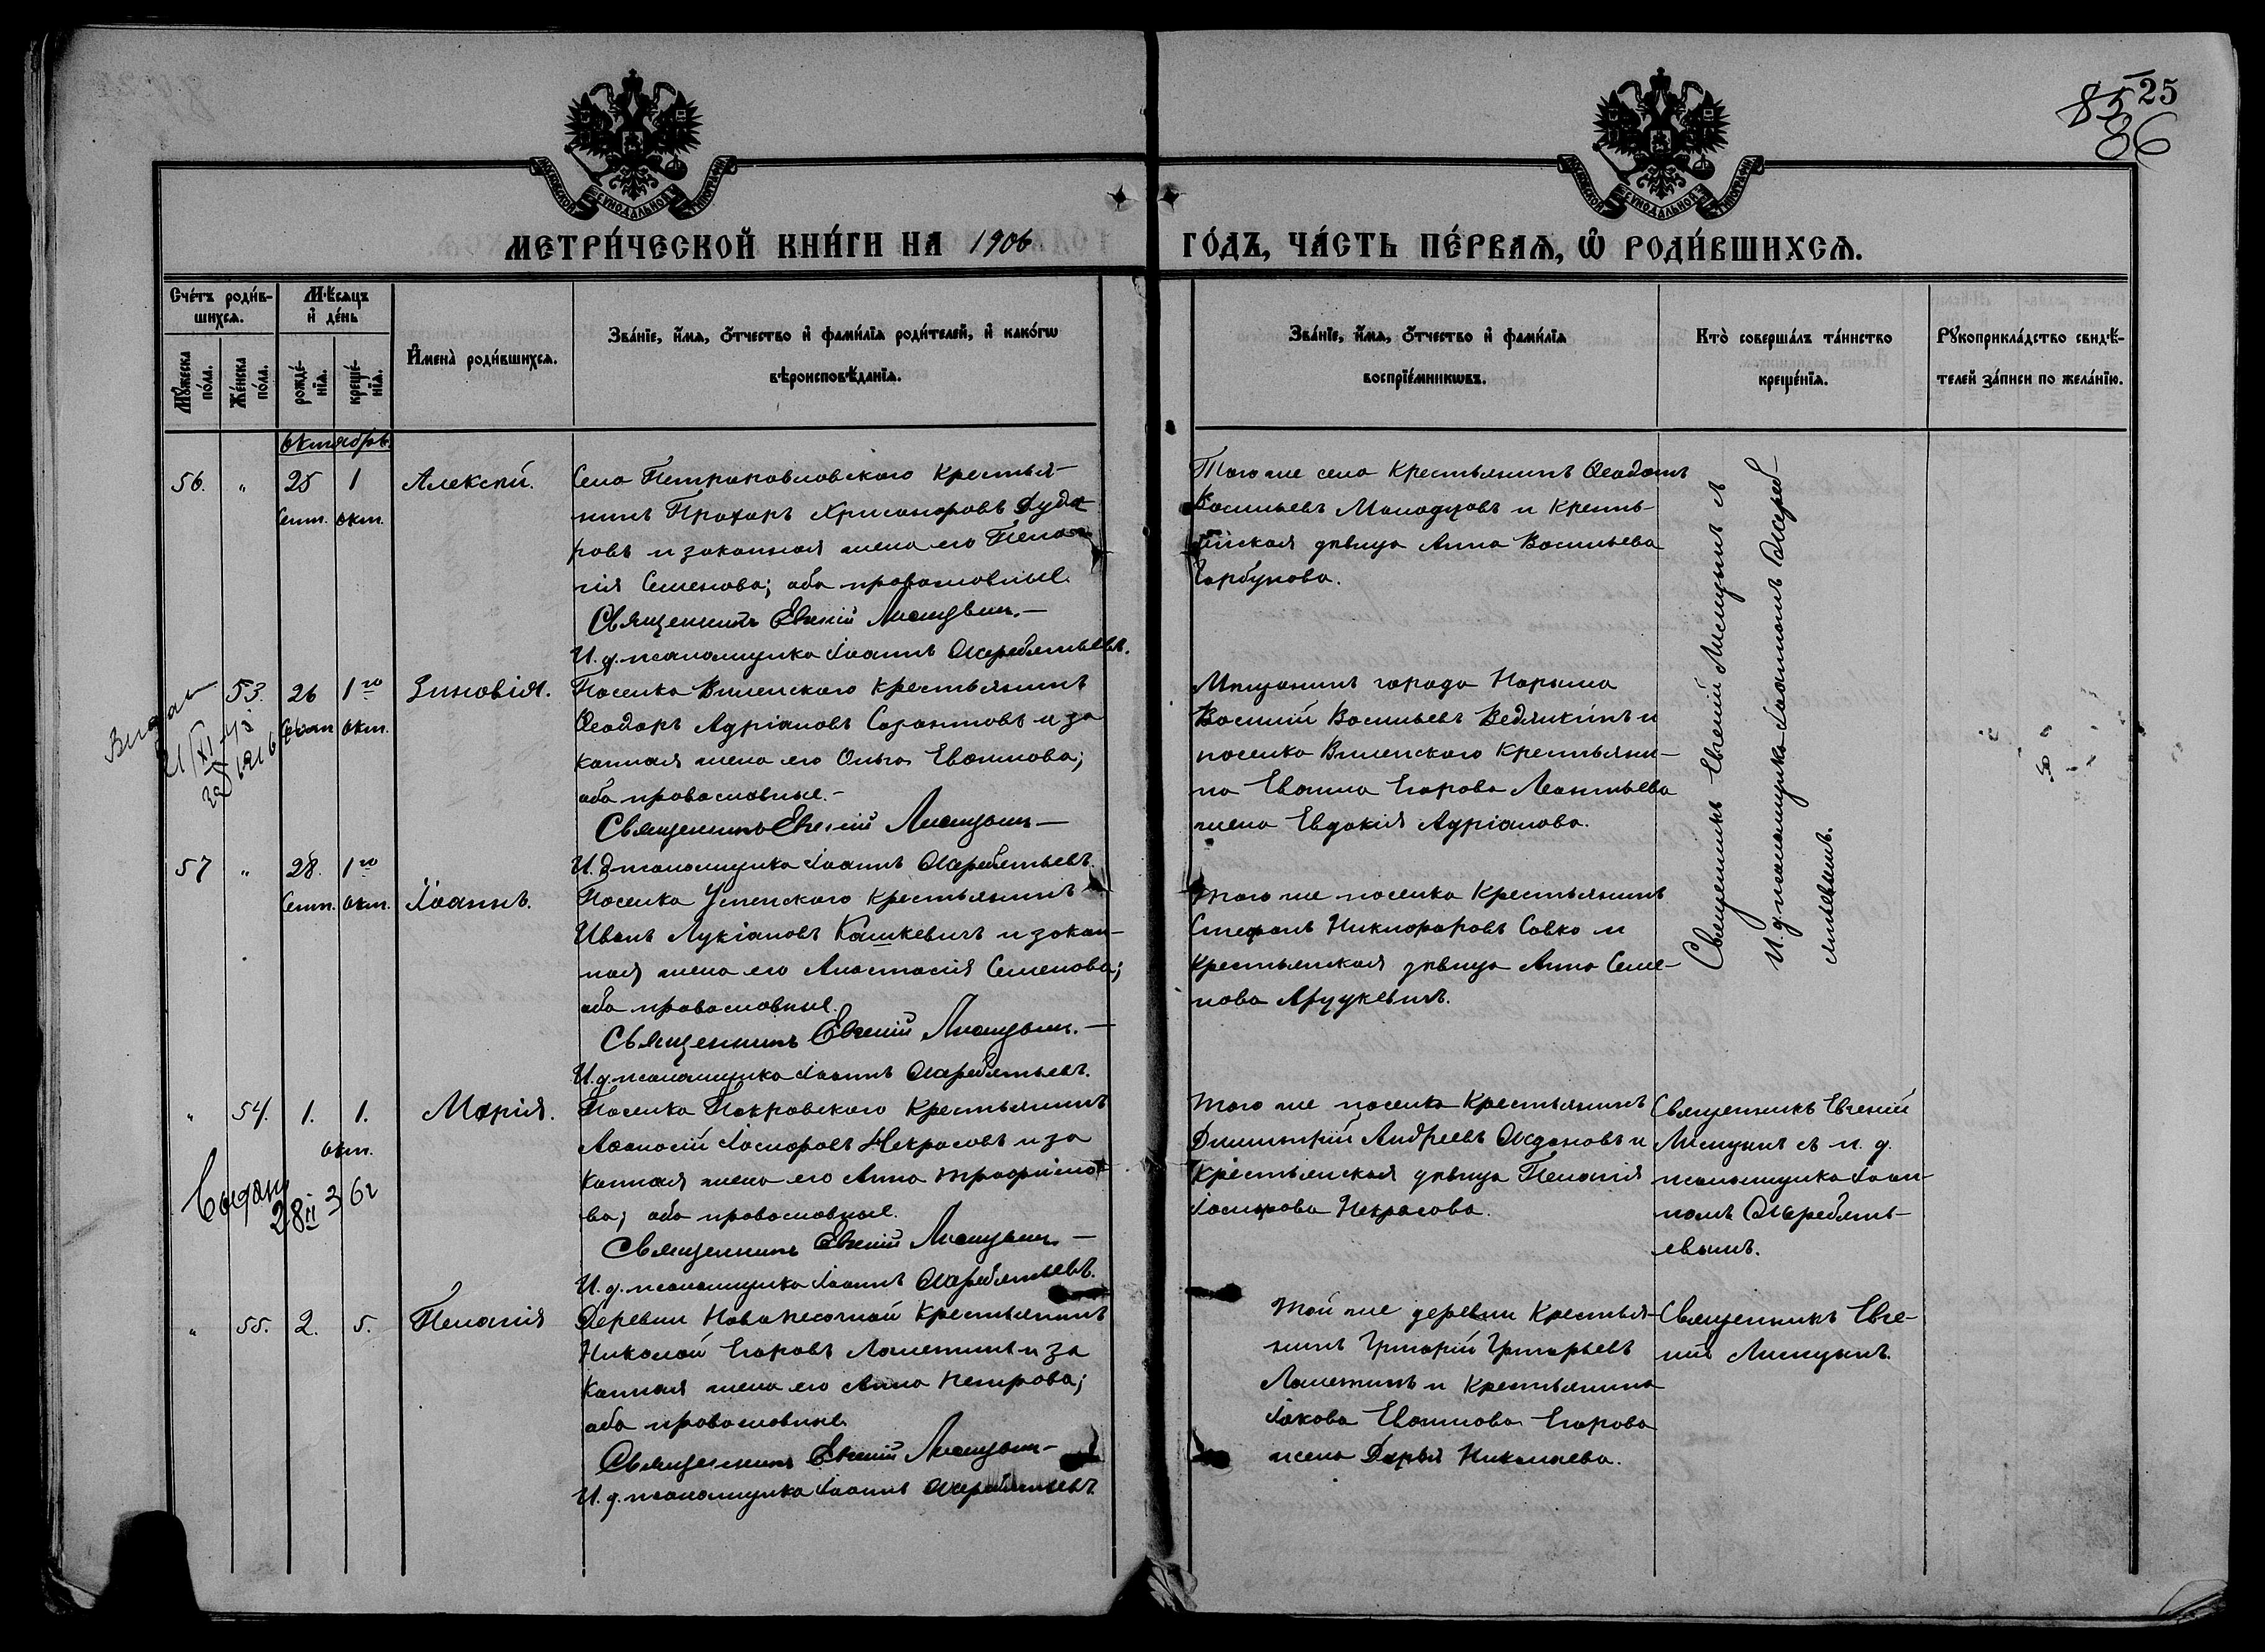 85 25
86
МОСКОВСКОЙ СѴНОДАЛЬНОЙ ТИПОГРАФІИ
МОСКОВСКОЙ СѴНОДАЛЬНОЙ ТИПОГРАФІИ
МЕТРИ́ЧЕСКОЙ КНИ́ГИ НА 1906
ГО́ДЪ, ЧА́СТЬ ПЕ́РВАѦ, Ѽ РОДИ́ВШИХСѦ.
Сче́тъ роди́в-
шихсѧ.
Мꙋ́жеска по́ла.
Же́нска по́ла.
Мѣ́сѧцъ
и҆ де́нь
рожде́-
нїѧ.
креще́-
нїѧ.
И҆мена̀ роди́вшихсѧ.
Зва́нїе, и҆́мѧ, ѻ҆́тчество и҆ фами́лїѧ роди́телей, и҆ како́гѡ
вѣроисповѣ́данїѧ.
Зва́нїе, и҆́мѧ, ѻ҆́тчество и҆ фами́лїѧ
воспрїе́мникѡвъ.
Кто̀ соверша́лъ та́инство
креще́нїѧ.
Рꙋкоприкла́дство свидѣ́-
телей за́писи по жела́нїю.
Октябрь
56. „ 25 1 Алексѣй.
Сент. окт.
Села Петропавловского крестья-
нинъ Прохоръ Хрисанфовъ Дуда
ровъ и законная жена его Пела
гія Семенова; оба православные.
Священникъ Евгеній Лисицынъ.—
И. д. псаломщика Іоаннъ Ожеребятьевъ.
Того же села крестьянинъ Ѳеодотъ
Васильевъ Молодцовъ и кресть-
янская дѣвица Анна Васильева
Горбунова.
Священникъ Евгеній Лисицынъ съ
И. д. псаломщика Іоанномъ Ожереб-
ятьевымъ.
53. 26 1го Зиновія.
Сент. окт.
21/XI
1916
Поселка Виленского крестьянинъ
Ѳеодоръ Адріановъ Сафоновъ и за
конная жена его Ольга Иванова;
оба православные.—
Священникъ Евгеній Лисицынъ—
И. д. псаломщика Іоаннъ Ожеребятьевъ.
Мѣщанинъ города Нарыма
Василій Васильевъ Ведяикинъ и
поселка Виленского крестьяни-
на Ивана Егорова Леонтьева
жена Евдокія Адріанова.
57 „ 28. 1го
Сент. окт. Іоаннъ.
Поселка Успенского крестьянинъ
Иванъ Лукіановъ Кашкевичъ и закон-
ная жена его Анастасія Семенова;
оба православные.
Священникъ Евгеній Лисицынъ.—
И. д. псаломщика Іоаннъ Ожеребятьевъ.
Того же поселка крестьянинъ
Стефанъ Никифоровъ Савко и
крестьянская дѣвица Анна Семе-
нова
„ 54. 1. 1. Марія.
окт.
28 II 36г
Поселка Покровского крестьянинъ
Аѳанасій Іосифовъ Некрасовъ и за
конная жена его Анна Трофимо
ва; оба православные.
Священникъ Евгеній Лисицынъ—
И. д. псаломщика Іоаннъ Ожеребятьевъ.
Того же поселка крестьянинъ
Димитрій Андреевъ и
крестьянская дѣвица Пелагія
Іосифова Некрасова.
Священникъ Евгеній
Лисицынъ съ и. д.
псаломщика Іоан-
номъ Ожеребять-
евымъ.
„ 55. 2. 5. Пелагія
Деревни Новопесочной крестьянинъ
Николай Егоровъ и за
конная жена его Анна Петрова;
оба православные
Священникъ Евгеній Лисицынъ—
И. д. псаломщика Іоаннъ Ожеребятьевъ
Той же деревни крестья-
нинъ Григорій Григорьевъ
и крестьянина
Іакова Иванова Егорова
жена Дарья Николаева.
Священникъ Евге-
ній Лисицынъ.